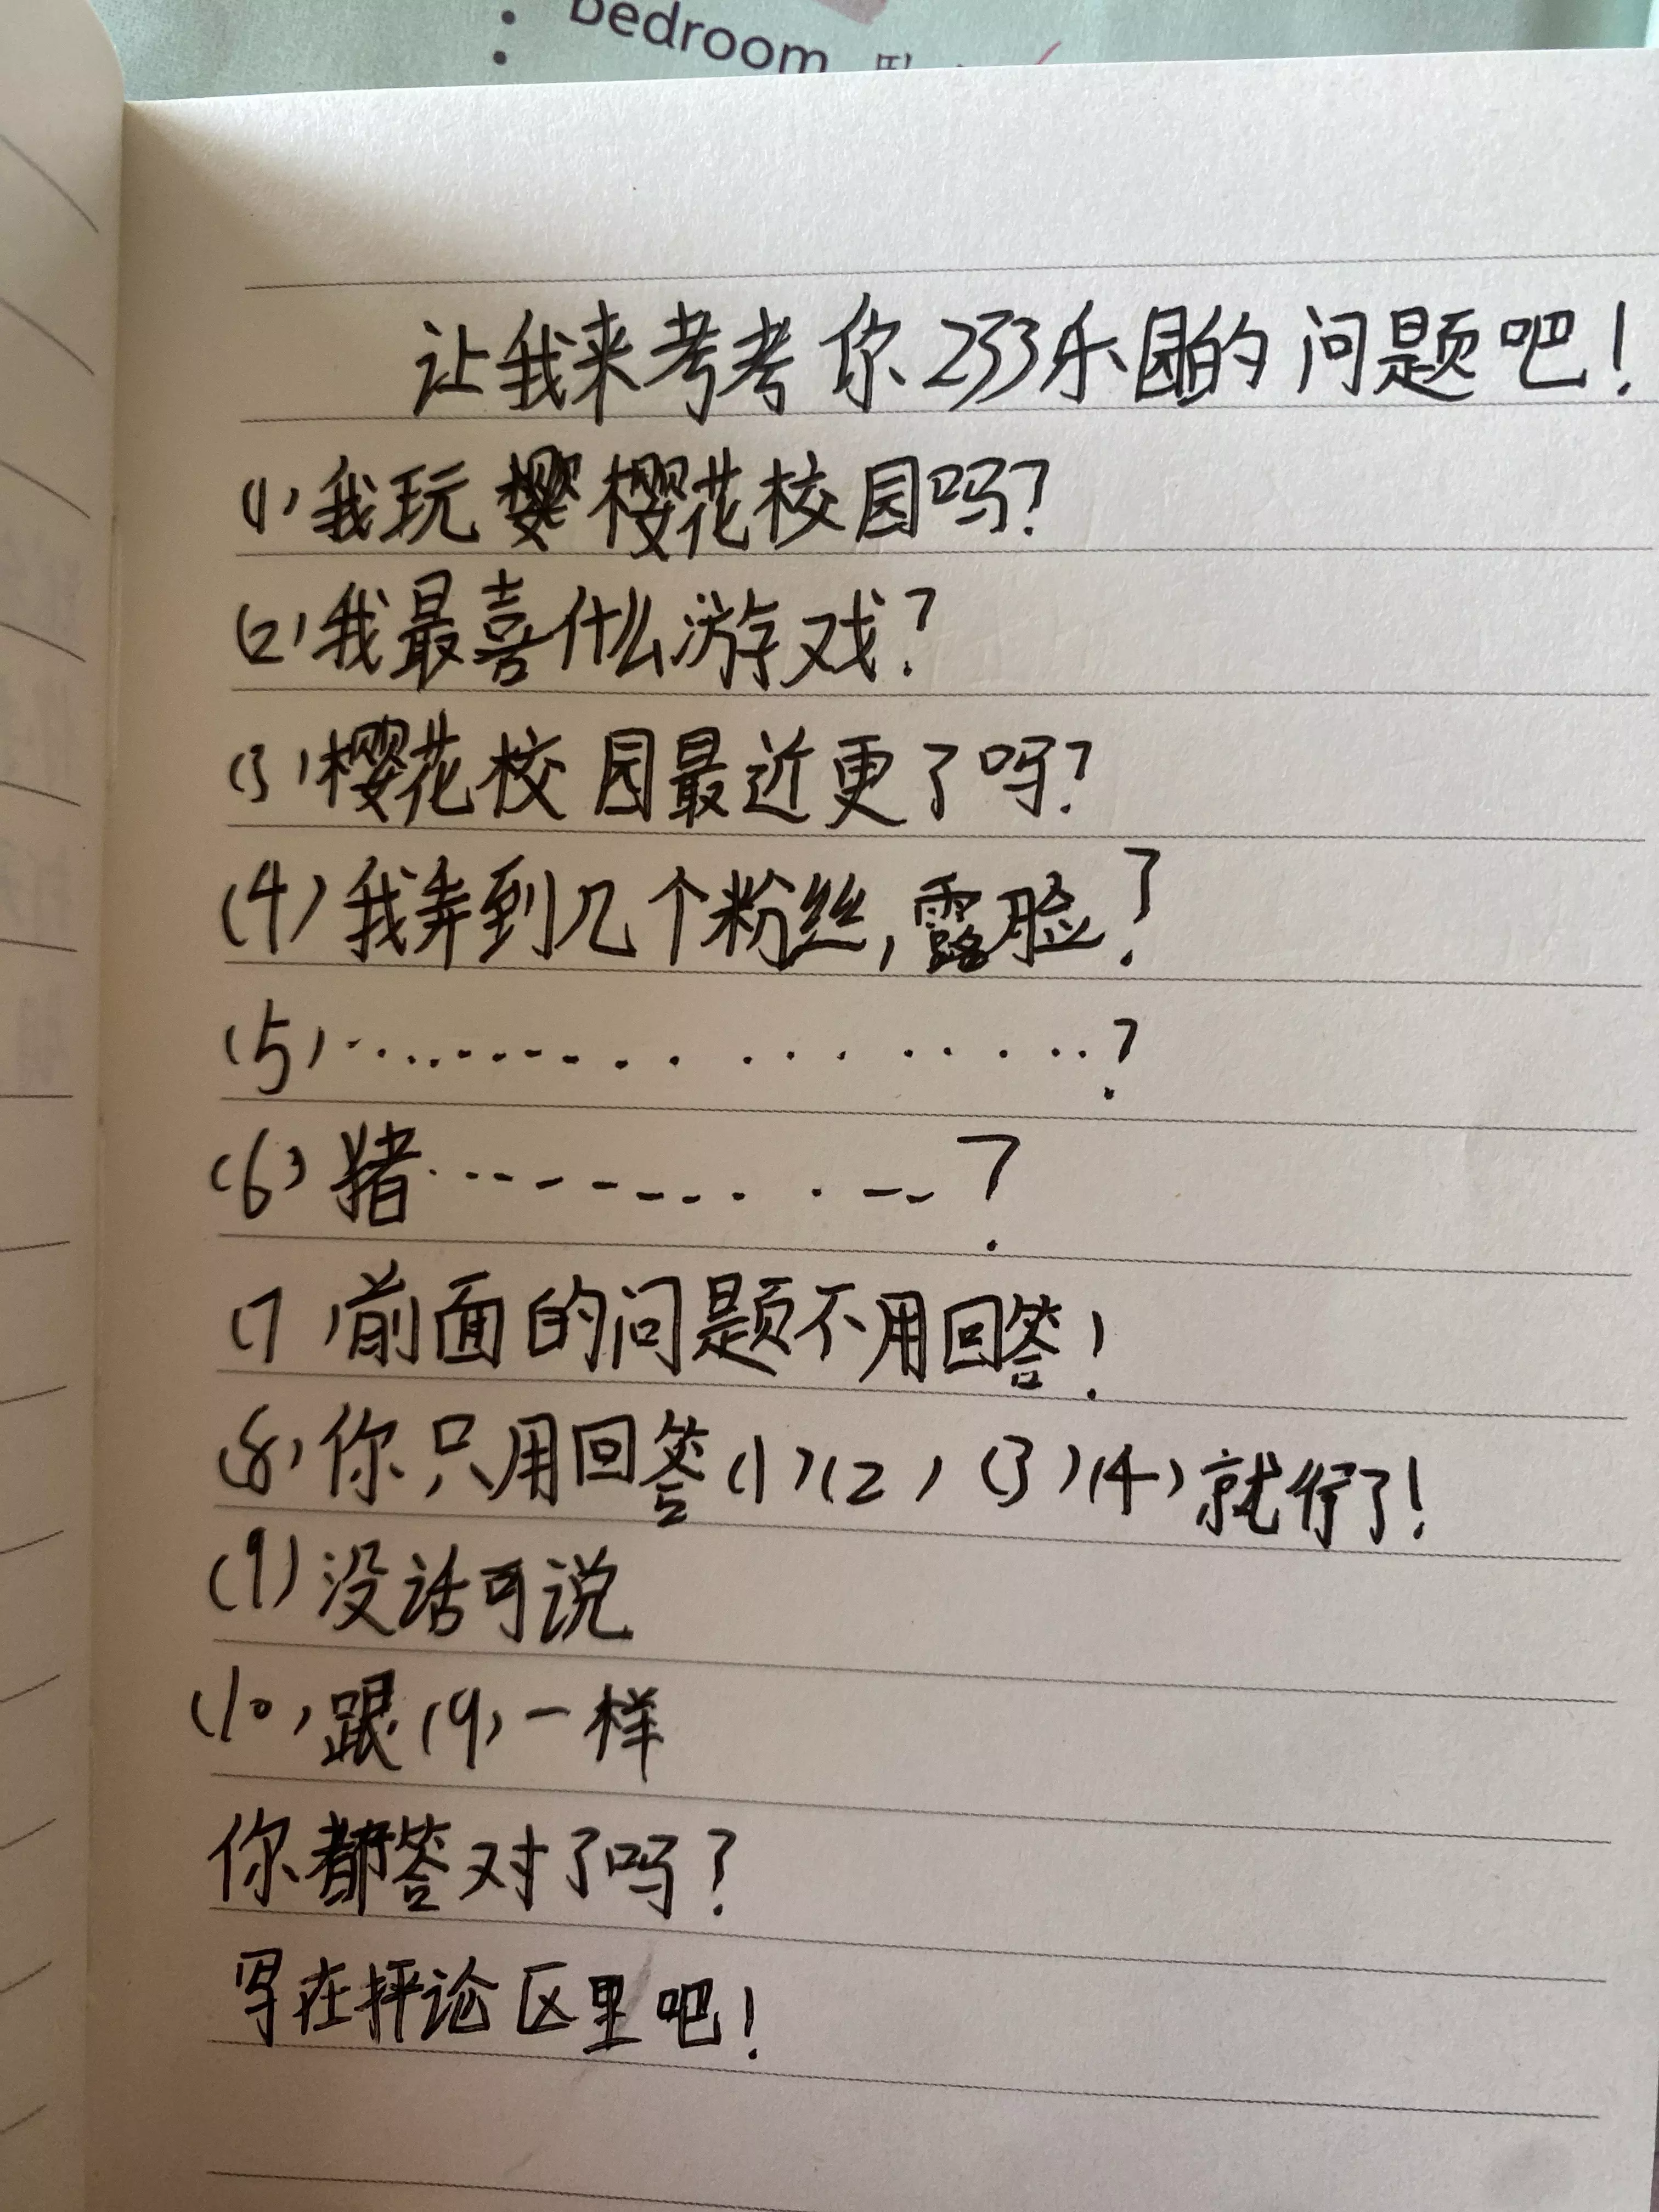 bedroom
让我来考考你233乐园的问题吧!
(1)我玩樱花校园吗?
(2)我最喜什么游戏?
(3)樱花校园最近更了吗?
(4)我弄到几个粉丝,露脸?
(5)··················?
(6)猪············?
(7)前面的问题不用回答!
(8)你只用回答(1)(2)(3)(4)就行了!
(9)没话可说
(10)跟(9)一样
你都答对了吗?
写在评论区里吧!